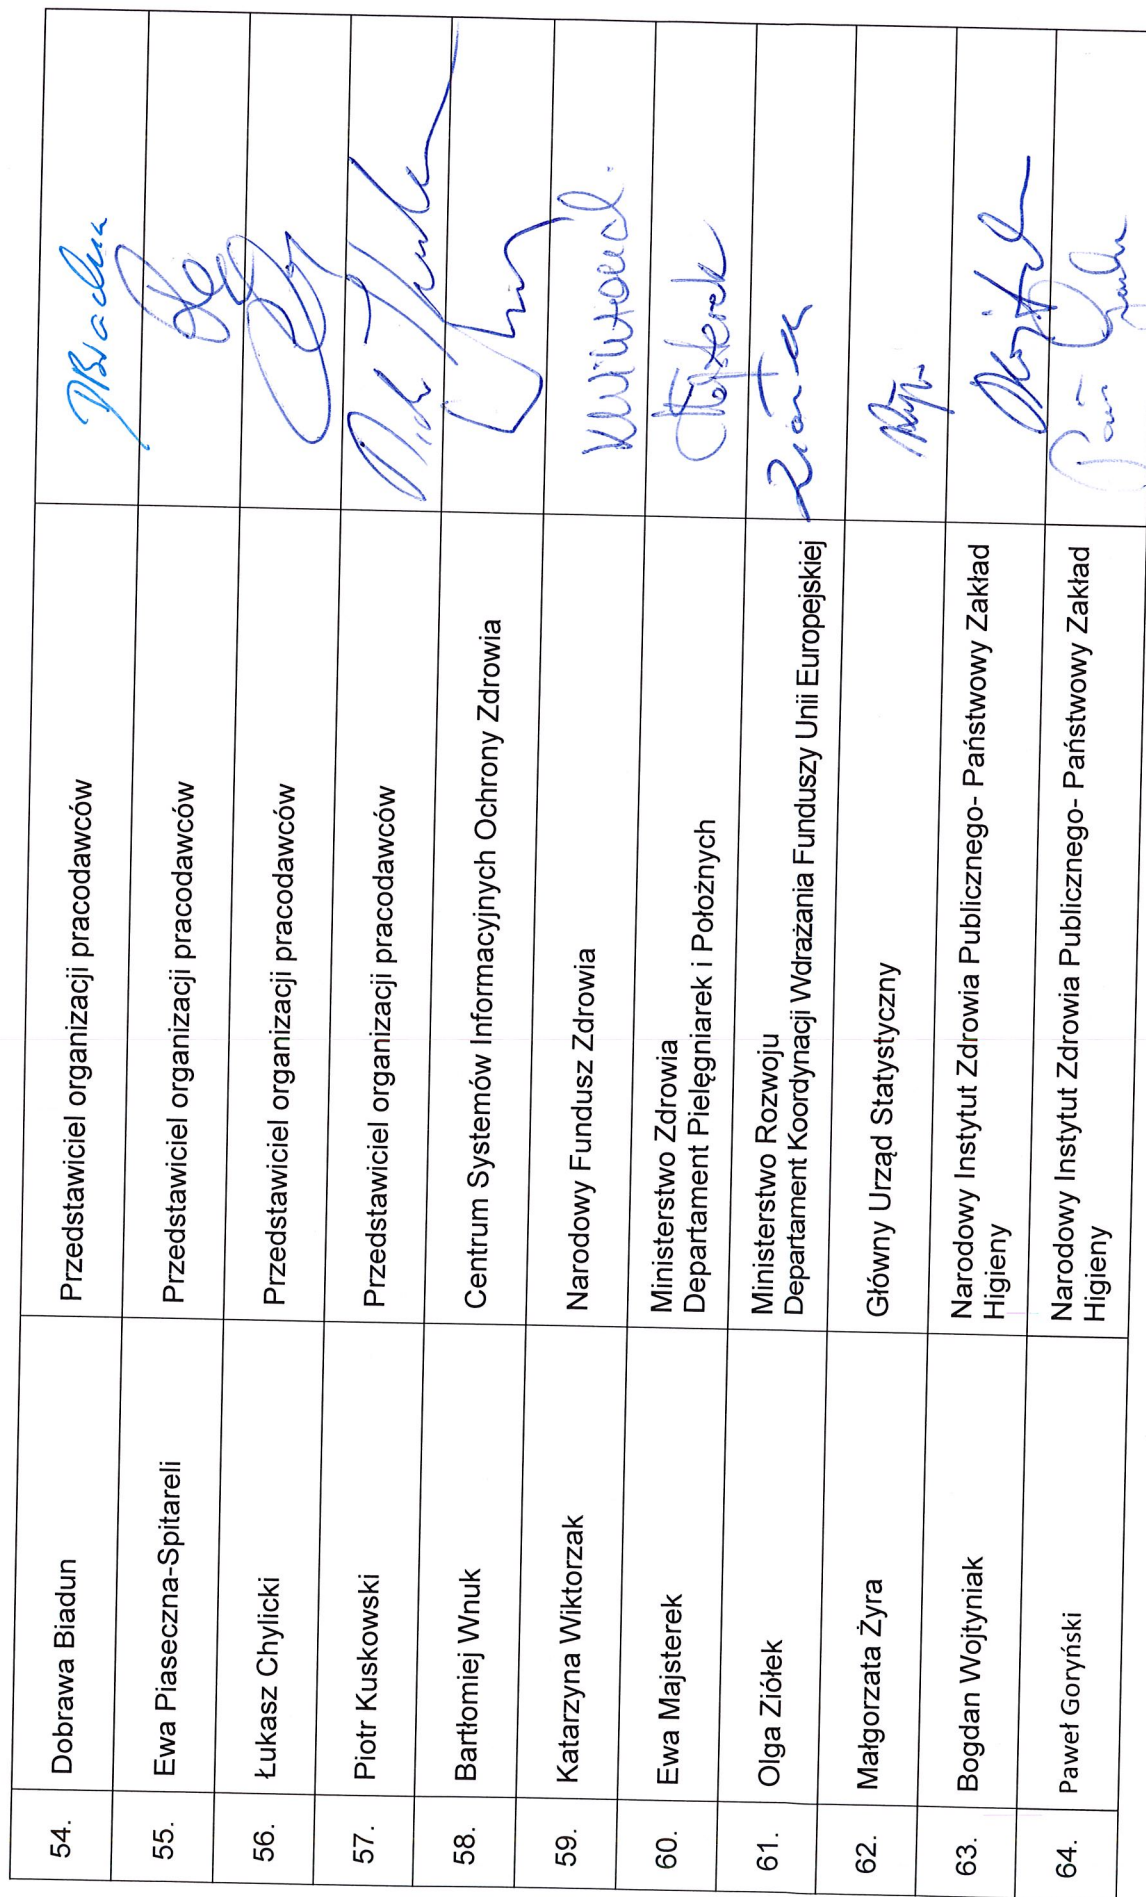 54. Dobrawa Biadun Przedstawiciel organizacji pracodawców
55. Ewa Piaseczna-Spitareli Przedstawiciel organizacji pracodawców
56. Łukasz Chylicki Przedstawiciel organizacji pracodawców
57. Piotr Kuskowski Przedstawiciel organizacji pracodawców
58. Bartłomiej Wnuk Centrum Systemów Informacyjnych Ochrony Zdrowia
59. Katarzyna Wiktorzak Narodowy Fundusz Zdrowia
60. Ewa Majsterek Ministerstwo Zdrowia
Departament Pielęgniarek i Położnych
61. Olga Ziółek Ministerstwo Rozwoju
Departament Koordynacji Wdrażania Funduszy Unii Europejskiej
62. Małgorzata Żyra Główny Urząd Statystyczny
63. Bogdan Wojtyniak Narodowy Instytut Zdrowia Publicznego- Państwowy Zakład
Higieny
64. Paweł Goryński Narodowy Instytut Zdrowia Publicznego- Państwowy Zakład
Higieny